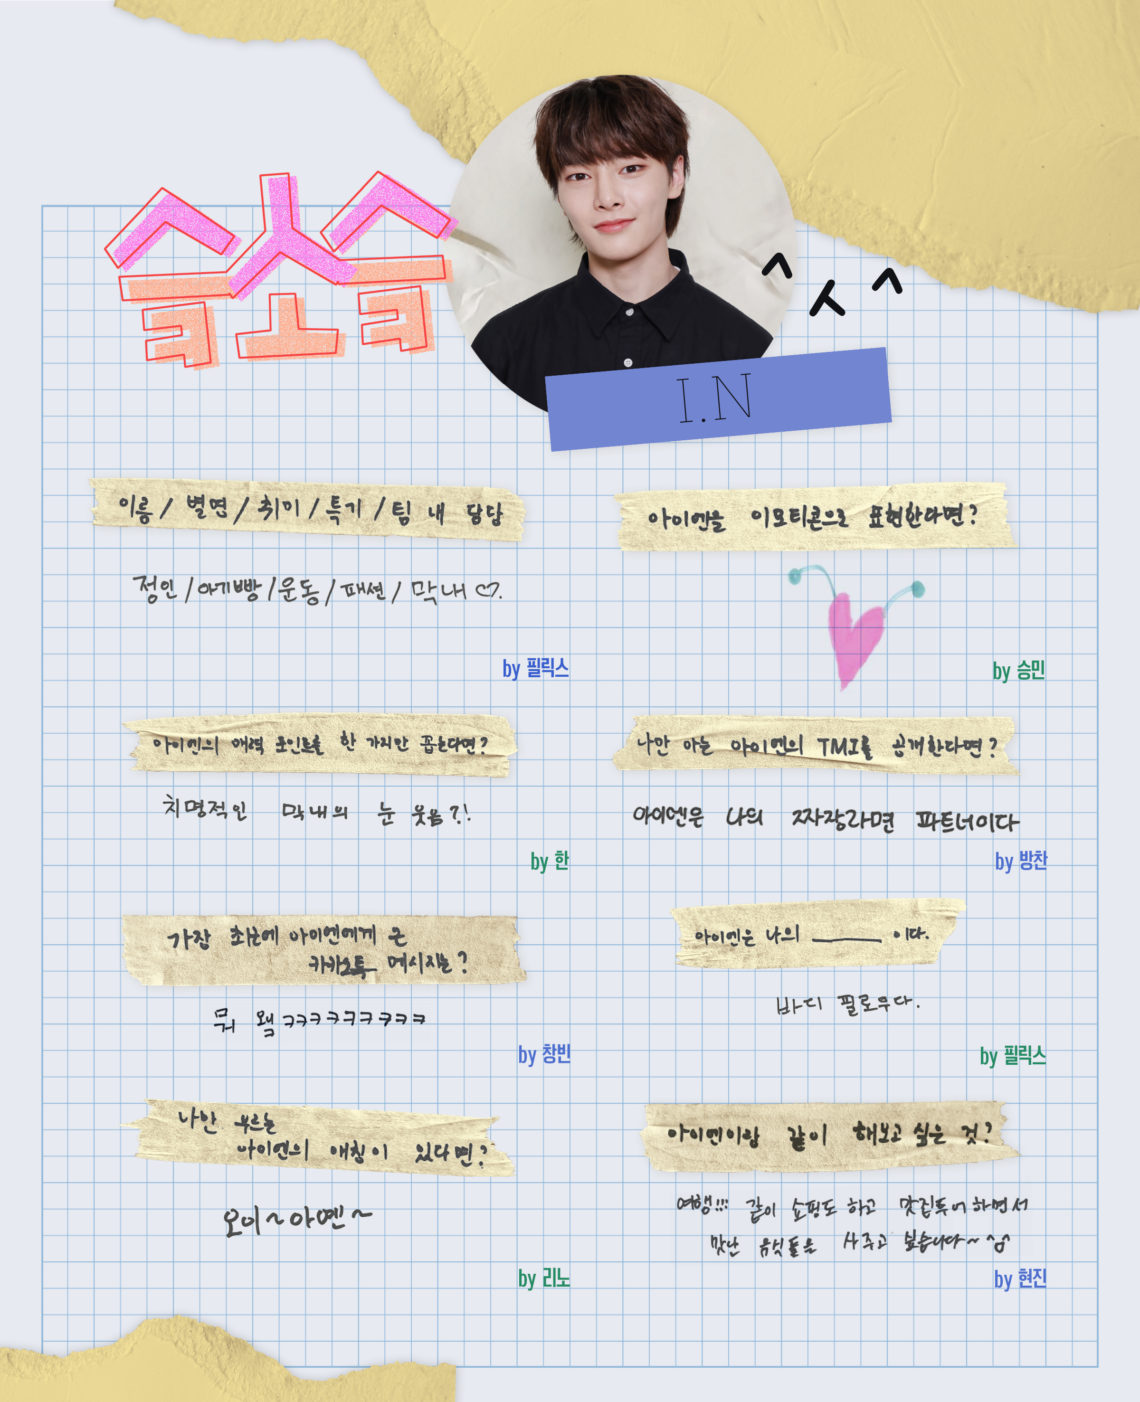 슬소슬
^ㅅ^
I.N
이름 / 별명 / 취미 / 특기 / 팀 내 담당
정인 / 아기빵 / 운동 / 패션 / 막내 ♡.
by 필릭스
아이엔을 이모티콘으로 표현한다면?
by 승민
아이엔의 매력 포인트를 한 가지만 꼽는다면?
치명적인 막내의 눈 웃음?!
by 한
나만 아는 아이엔의 TMI를 공개한다면?
아이엔은 나의 짜장라면 파트너이다
by 방찬
가장 최근에 아이엔에게 온
카카오톡 메시지는?
뭐 왴ㅋㅋㅋㅋㅋㅋㅋㅋ
by 창빈
아이엔은 나의 ______ 이다.
바디 필로우다.
by 필릭스
나만 부르는
아이엔의 애칭이 있다면?
오이~아옌~
by 리노
아이엔이랑 같이 해보고 싶은 것?
여행!!! 같이 쇼핑도 하고 맛집투어하면서
맛난 음식들을 사주고 싶습니다~ ^^
by 현진